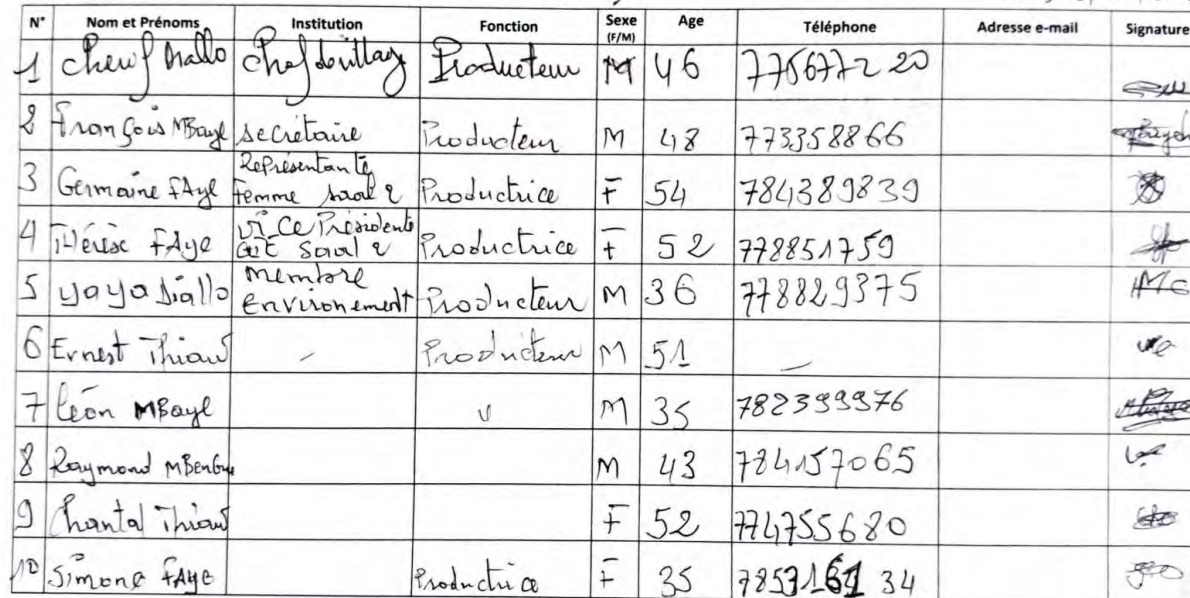 N° Nom et Prénoms Institution Fonction Sexe (F/M) Age Téléphone Adresse e-mail Signature
1 Cherif Diallo Chef de village Producteur M 46 775677220
2 François MBaye secrétaire Producteur M 48 773358866
3 Germaine FAye Représentante femme 2 Productrice F 54 784389839
4 Thérèse FAye Vice Présidente 2 Productrice F 52 778851759
5 yaya Diallo membre environement Producteur M 36 778829375
6 Ernest Thiaw - Producteur M 51 -
7 Léon MBaye M 35 782399976
8 Raymond MBengue M 43 784157065
9 Chantal Thiaw F 52 774755680
10 Simone FAye Productrice F 35 34